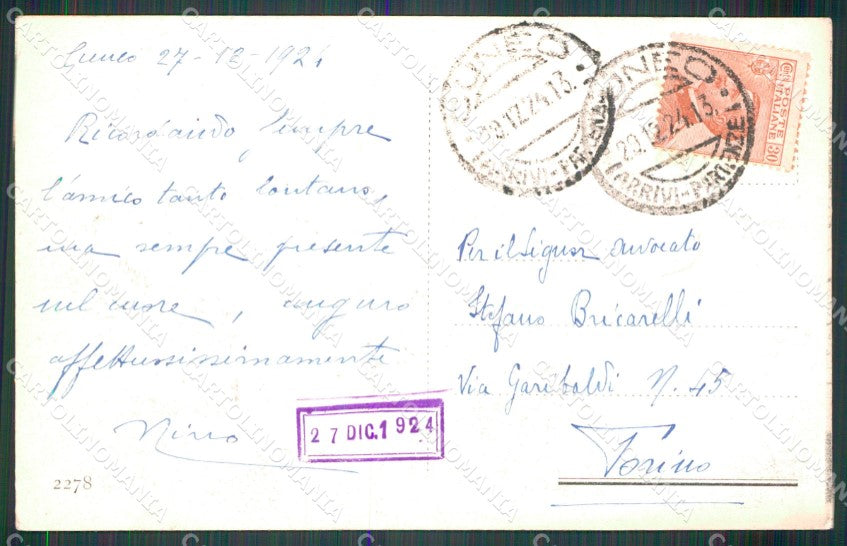 Cuneo 27-12-1924
Ricordando sempre
l'amico tanto lontano,
ma sempre presente
nel cuore, auguro
affettuosissimamente
Nino
2278
27 DIC.1924
CUNEO
.12.24.13.
(ARRIVI-PARTENZE)
CUNEO
.12.24.13.
(ARRIVI-PARTENZE)
POSTE
ITALIANE
C.MI 30
Per il Signor avvocato
Stefano Bricarelli
Via Garibaldi N. 45
Torino
CARTOLINOMANIA